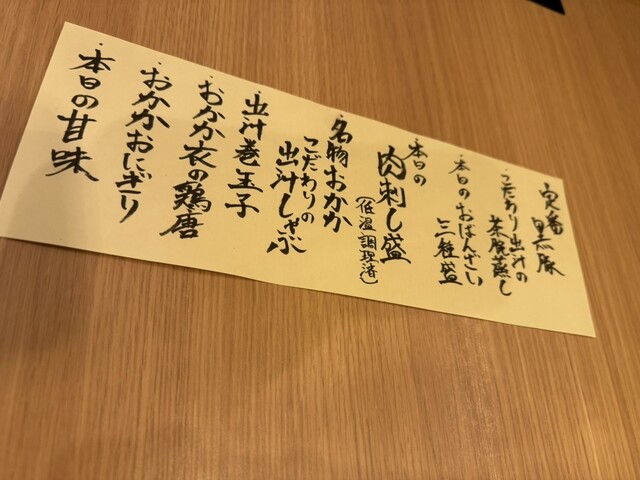 定番 黒豚
・こだわり出汁の
茶碗蒸し
・本日のおばんざい
三種盛
・本日の
肉刺し盛
(低温調理済)
・名物おかか
こだわりの
出汁しゃぶ
・出汁巻玉子
・おかか衣の鶏唐
・おかかおにぎり
・本日の甘味